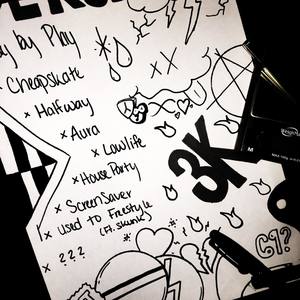 by Play
x Cheapskate
x Halfway
x Aura
x Lowlife
x House Party
x ScreenSaver
x Used to Freestyle
(Ft. Skunk)
x ???
3K
C9?